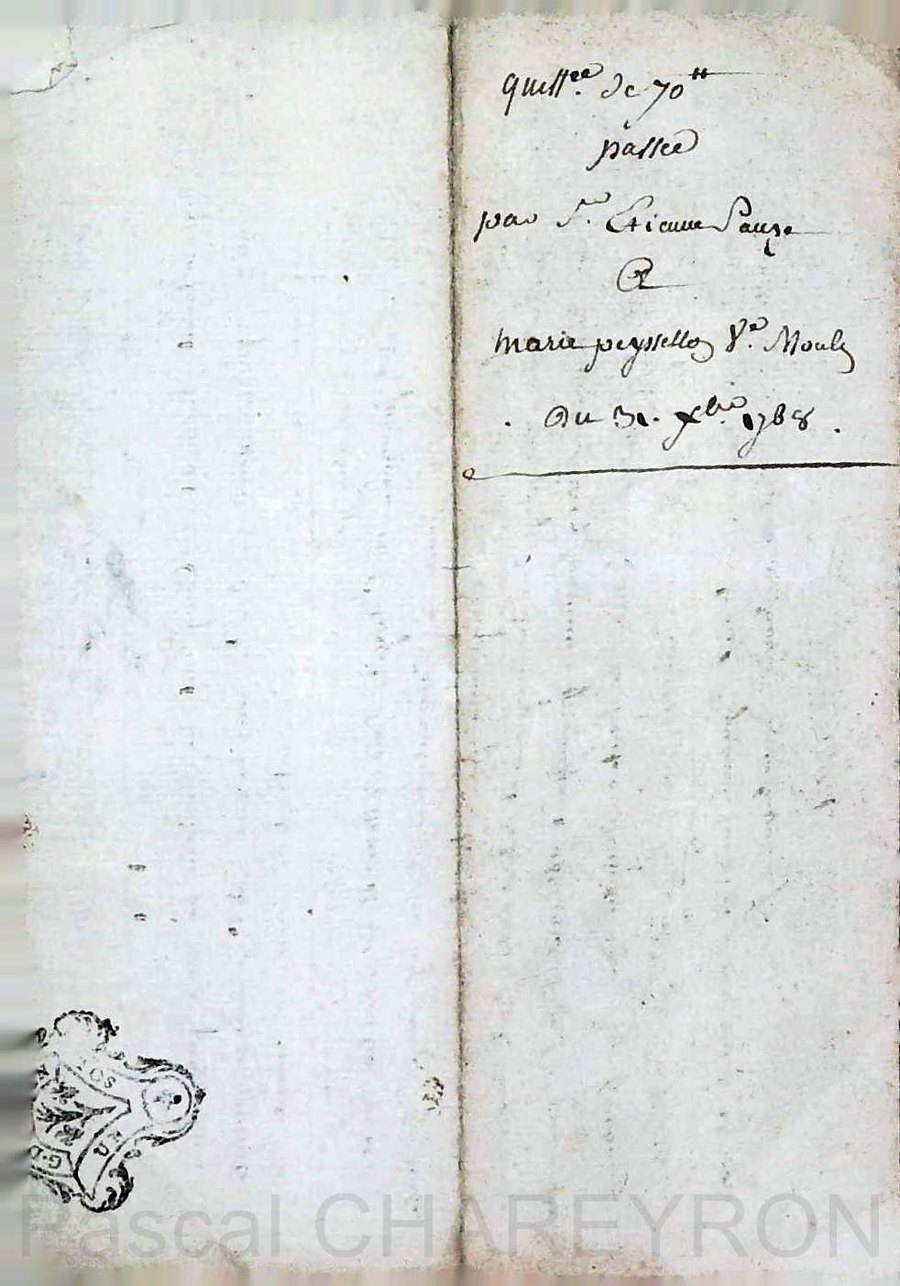 quitt.ce de 70 ₶
passée
par S.r Etienne Sauze
a
marie peyssellon V.e Moulin
Du 31. Xbre 1788.
SOL
G.
Pascal CHAREYRON